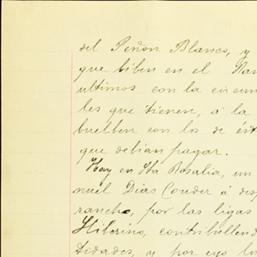 del Peñon Blanco, y
que biben en el Ran
ultimos con la circun
les que tienen, á la
buelben con los de éx
que debian pagar.
Hay en Sta Rosalia, un
nuel Dias Conder á des
rancho, por las ligas
Hilarino, contribullend
tidades, y por eso los